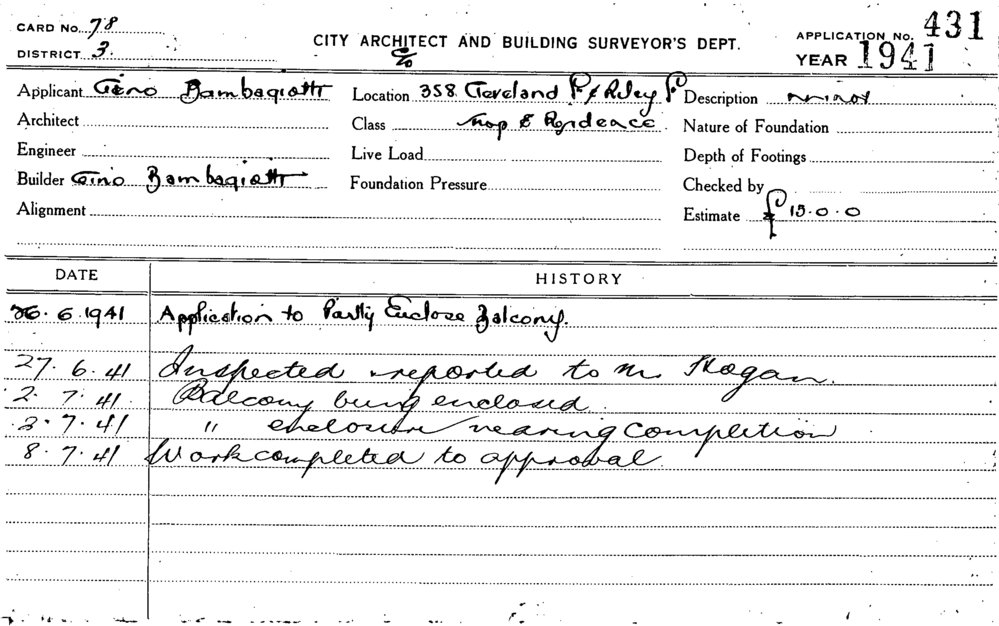 CARD No. 78
DISTRICT 3.
CITY ARCHITECT AND BUILDING SURVEYOR'S DEPT.
APPLICATION No. 431
YEAR 1941
Applicant Gino Bambagiotti Location 358 Cleveland St & Riley St Description minor
Architect Class Shop & Residence Nature of Foundation
Engineer Live Load Depth of Footings
Builder Gino Bambagiotti Foundation Pressure Checked by
Alignment Estimate £15.0.0
DATE HISTORY
26.6.1941 Application to Partly Enclose Balcony.
27.6.41 Inspected reported to Mr Hogan.
2.7.41. Balcony being enclosed.
3.7.41 " enclosure nearing completion
8.7.41 Work completed to approval.